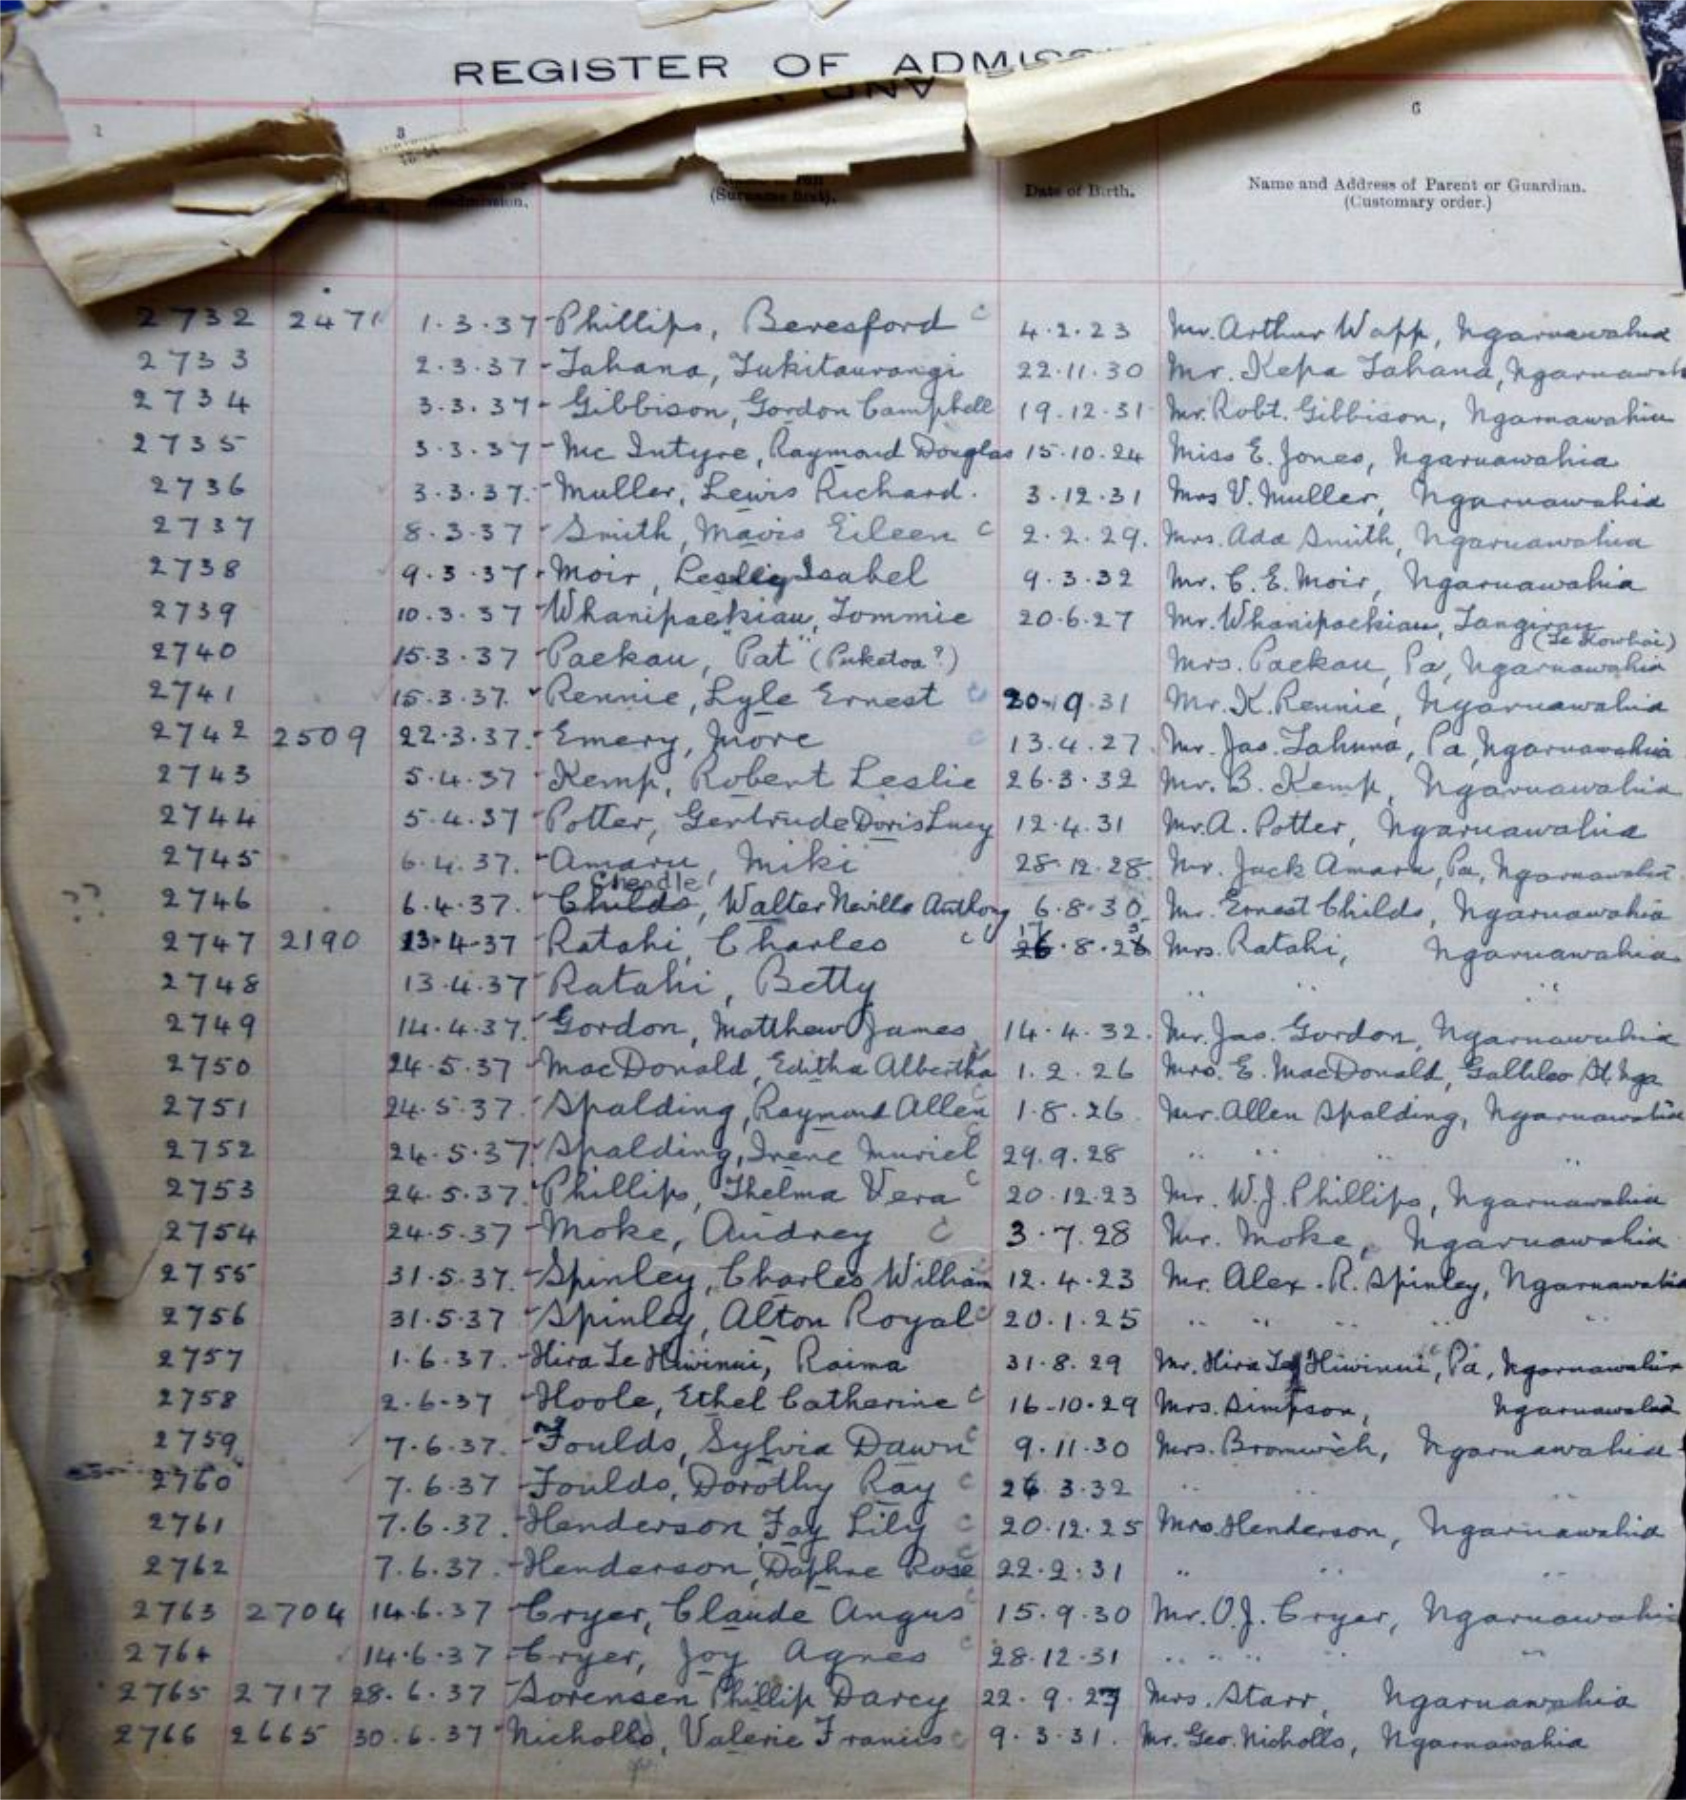 REGISTER OF ADMISS
AND W
2 3 6
Date of Birth. Name and Address of Parent or Guardian.
(Surname first). (Customary order.)
2732 2471 1.3.37 Phillips, Beresford c 4.2.23 Mr. Arthur Wapp, Ngaruawahia
2733 2.3.37 - Tahana, Tukitaurangi 22.11.30 Mr. Kepa Tahana, Ngaruawah
2734 3.3.37 - Gibbison, Gordon Campbell 19.12.31 Mr. Robt. Gibbison, Ngaruawahia
2735 3.3.37 - Mc Intyre, Raymond Douglas 15.10.24 Miss E. Jones, Ngaruawahia
2736 3.3.37. - Muller, Lewis Richard. 3.12.31 Mrs V. Muller, Ngaruawahia
2737 8.3.37 - Smith, Mavis Eileen c 2.2.29. Mrs. Ada Smith, Ngaruawahia
2738 9.3.37 - Moir, Lesley Isabel 9.3.32 Mr. C. E. Moir, Ngaruawahia
2739 10.3.37 Whanipaekiau, Tommie 20.6.27 Mr. Whanipaekiau, Tangirau
(Te Kowhai)
2740 15.3.37 - Paekau, "Pat" (Puketoa?) Mrs. Paekau, Pa, Ngaruawahia
2741 15.3.37. Rennie, Lyle Ernest c 20.19.31 Mr. K. Rennie, Ngaruawahia
2742 2509 22.3.37. - Emery, More c 13.4.27. Mr. Jas. Tahuna, Pa, Ngaruawahia
2743 5.4.37 - Kemp, Robert Leslie 26.3.32 Mr. B. Kemp, Ngaruawahia
2744 5.4.37 - Potter, Gertrude Doris Lucy 12.4.31 Mr. A. Potter, Ngaruawahia
2745 6.4.37. - Amaru, Miki 28.12.28. Mr. Jack Amaru, Pa, Ngaruawahia
Cheadle
?? 2746 6.4.37. - Childs, Walter Neville Anthony 6.8.30 Mr. Ernest Childs, Ngaruawahia
2747 2190 13.4.37 Ratahi, Charles c 26.8.26 Mrs. Ratahi, Ngaruawahia
2748 13.4.37 Ratahi, Betty " " "
2749 14.4.37. Gordon, Matthew James 14.4.32. Mr. Jas. Gordon, Ngaruawahia
2750 24.5.37 - MacDonald, Editha Albertha 1.2.26 Mrs. E. MacDonald, Gallileo St. Nga
2751 24.5.37. Spalding, Raymond Allen c 1.8.26 Mr. Allen Spalding, Ngaruawahia
2752 24.5.37. Spalding, Irene Muriel c 29.9.28 " " "
2753 24.5.37. Phillips, Thelma Vera c 20.12.23 Mr. W.J. Phillips, Ngaruawahia
2754 24.5.37 - Moke, Audrey c 3.7.28 Mr. Moke, Ngaruawahia
2755 31.5.37. - Spinley, Charles William 12.4.23 Mr. Alex. R. Spinley, Ngaruawahia
2756 31.5.37 Spinley, Alton Royal c 20.1.25 " " " " "
2757 1.6.37. - Hira Te Hiwinui, Raima 31.8.29 Mr. Hira Te Hiwinui, Pa, Ngaruawahia
2758 2.6.37 - Hoole, Ethel Catherine c 16.10.29 Mrs. Simpson, Ngaruawahia
2759 7.6.37. - Foulds, Sylvia Dawn c 9.11.30 Mrs. Bromwich, Ngaruawahia
2760 7.6.37 - Foulds, Dorothy Ray c 26 3.32 " " "
2761 7.6.37. - Henderson, Fay Lily c 20.12.25 Mrs. Henderson, Ngaruawahia
2762 7.6.37. - Henderson, Daphne Rose c 22.2.31 " " "
2763 2704 14.6.37 - Cryer, Claude Angus c 15.9.30 Mr. O.J. Cryer, Ngaruawahia
2764 14.6.37 - Cryer, Joy Agnes c 28.12.31 " " " " "
2765 2717 28.6.37 - Sorensen Phillip Darcy 22.9.27 Mrs. Starr, Ngaruawahia
2766 2665 30.6.37 - Nicholls, Valerie Francis c 9.3.31. Mr. Geo. Nicholls, Ngaruawahia